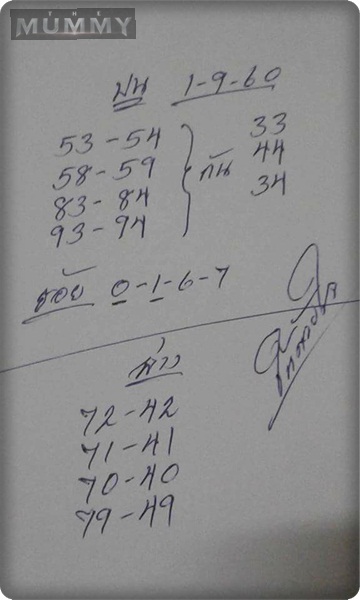 THE
MUMMY
บน 1-9-60
53-54
58-59
83-84
93-94
กัน
33
44
34
ร้อย 0-1-6-7
ล่าง
72-42
71-41
70-40
79-49